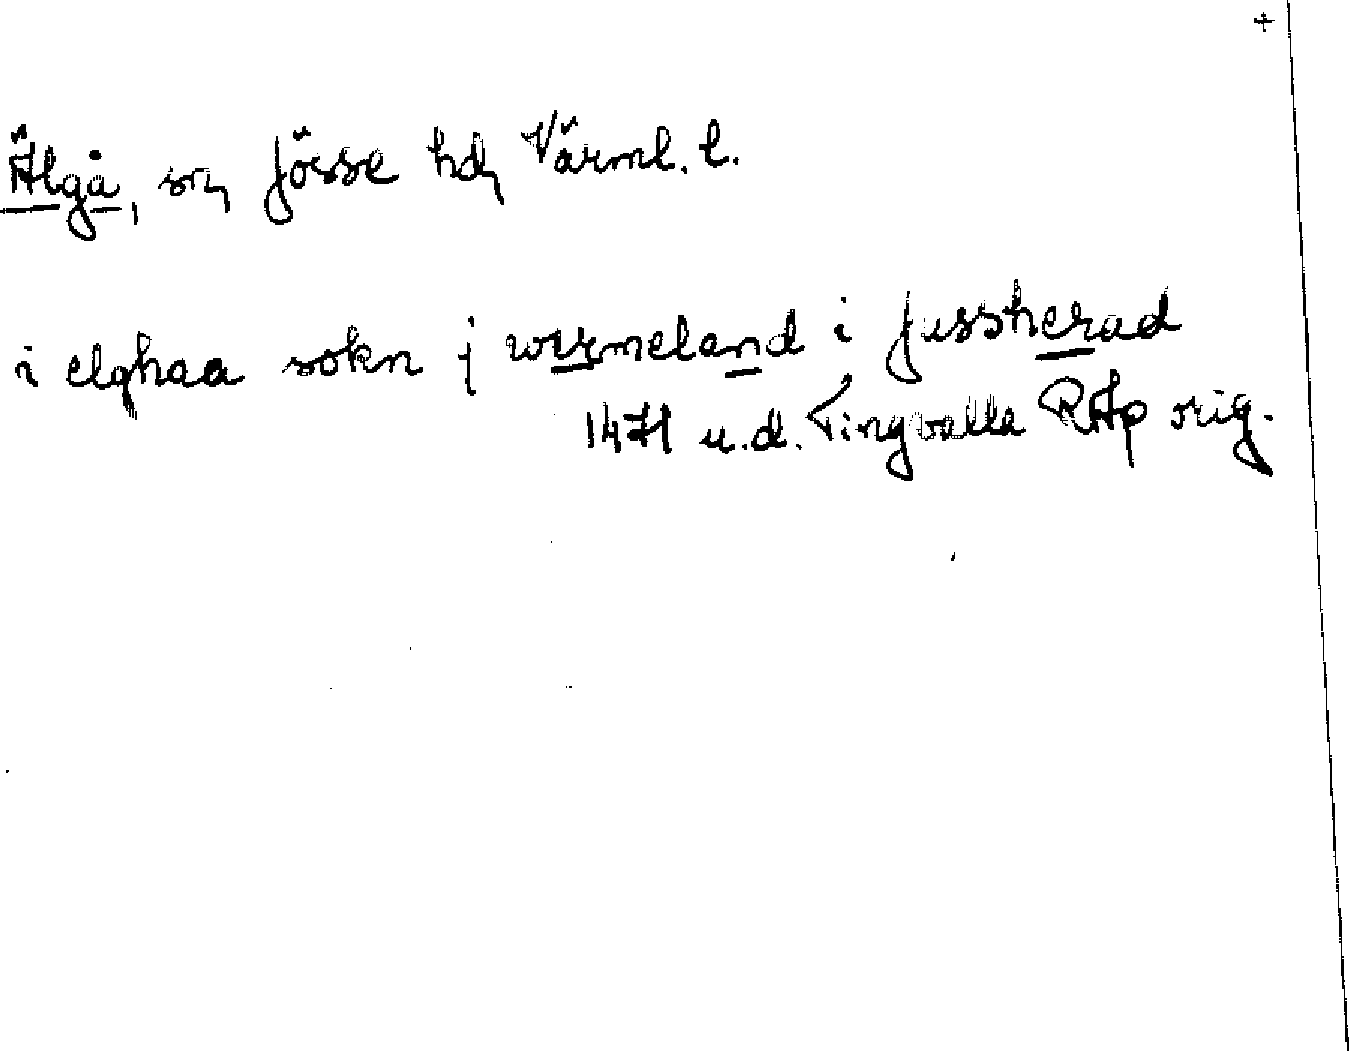 +
Älgå, sn, Jösse hd, Värml. l.
i elghaa sokn j wermeland i jussherad
1471 u.d. Tingvalla RAp orig.